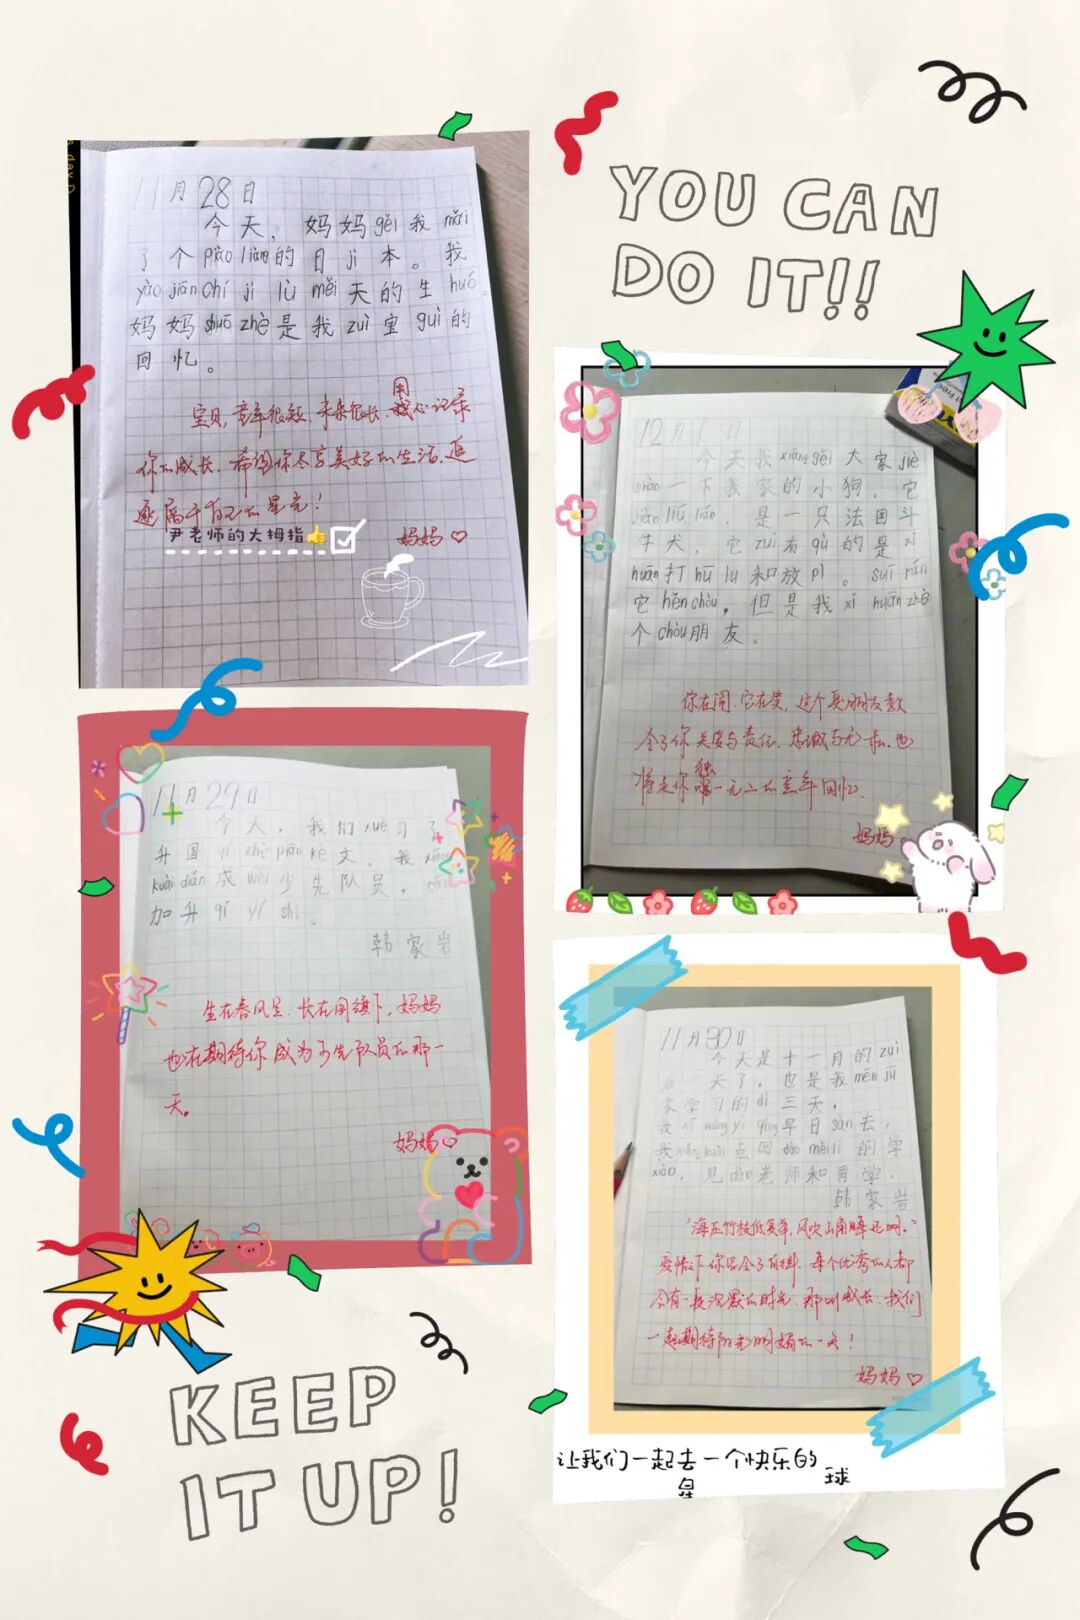 11月28日
今天，妈妈gěi我mǎi
了个piào liàng的日jì本。我
yào jiān chí jì lù měi天的生huó。
妈妈shuō zhè是我zuì宝guì的
回忆。
宝贝，童年很短，未来很长，用心记录
你的成长，希望你尽享美好的生活，追
逐属于自己的星光！
尹老师的大拇指👍
妈妈♡
YOU CAN
DO IT!!
12月1日
今天我xiǎng gěi大家jiè
shào一下我家的小狗，它
jiào liú lián，是一只法国斗
牛犬，它zuì有qù的是xǐ
huān打hū lu和放pì。suī rán
它hěn chòu，但是我xǐ huān zhè
个chòu朋友。
你在闹，它在笑，这个臭朋友教
会了你关爱与责任，忠诚与无私，也
将是你独一无二的童年回忆。
妈妈
11月29日
今天，我们xué习了
升国qí zhè piān kè文，我xiǎng
kuài diǎn成wéi少先队员，cān
加升qí yí shì。
韩家岩
生在春风里，长在国旗下，妈妈
也在期待你成为少先队员的那一
天。
妈妈♡
11月30日
今天是十一月的zuì
后一天了，也是我mén jū
家学习的dì三天，
我xī wàng yì qíng早日sàn去，
我xiǎng kuài点回dào měi lì的学
xiào，见dào老师和同学。
韩家岩
“海压竹枝低复举，风吹山角晦还明。”
疫情之下你学会了自律，每个优秀的人都
会有一段沉默的时光，那叫成长，我们
一起期待阳光明媚的一天！
妈妈♡
让我们一起去一个快乐的
星
球
KEEP
IT UP!